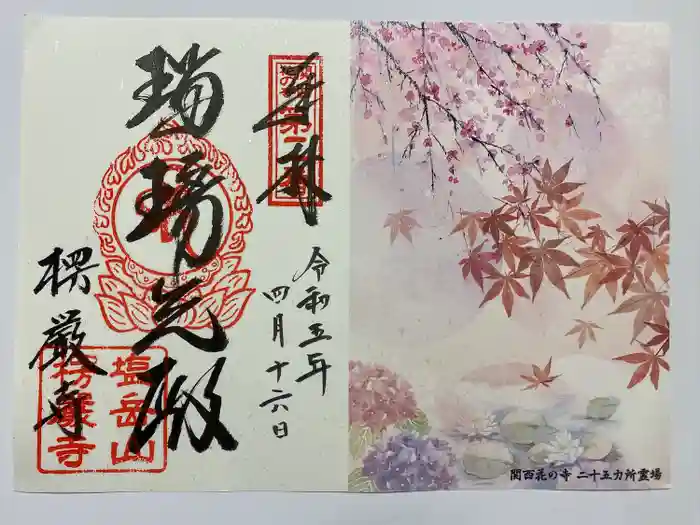 奉拝
令和五年
四月十六日
瑠璃光殿
楞厳寺
塩岳山
楞嚴寺
関西花の寺 二十五カ所霊場